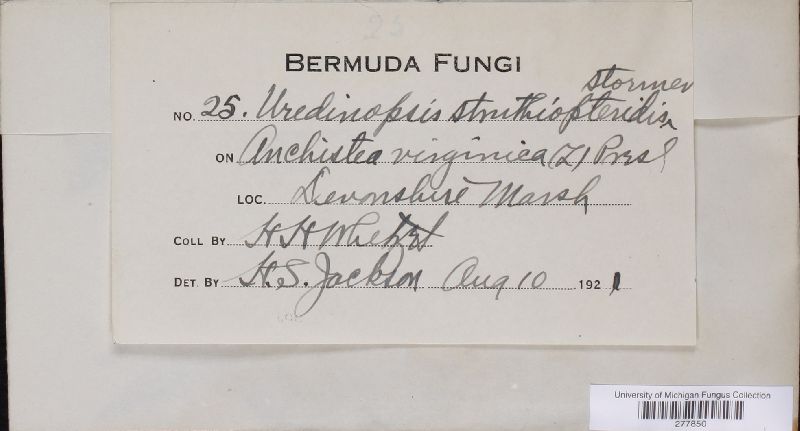 25
BERMUDA FUNGI
Stormer
NO. 25. Uredinopsis struthiopteridis
ON Anchistea virginica (L) Presl
LOC. Devonshire Marsh
COLL BY H H Whetzel
DET. BY H.S. Jackson Aug 10 1921
University of Michigan Fungus Collection
277850